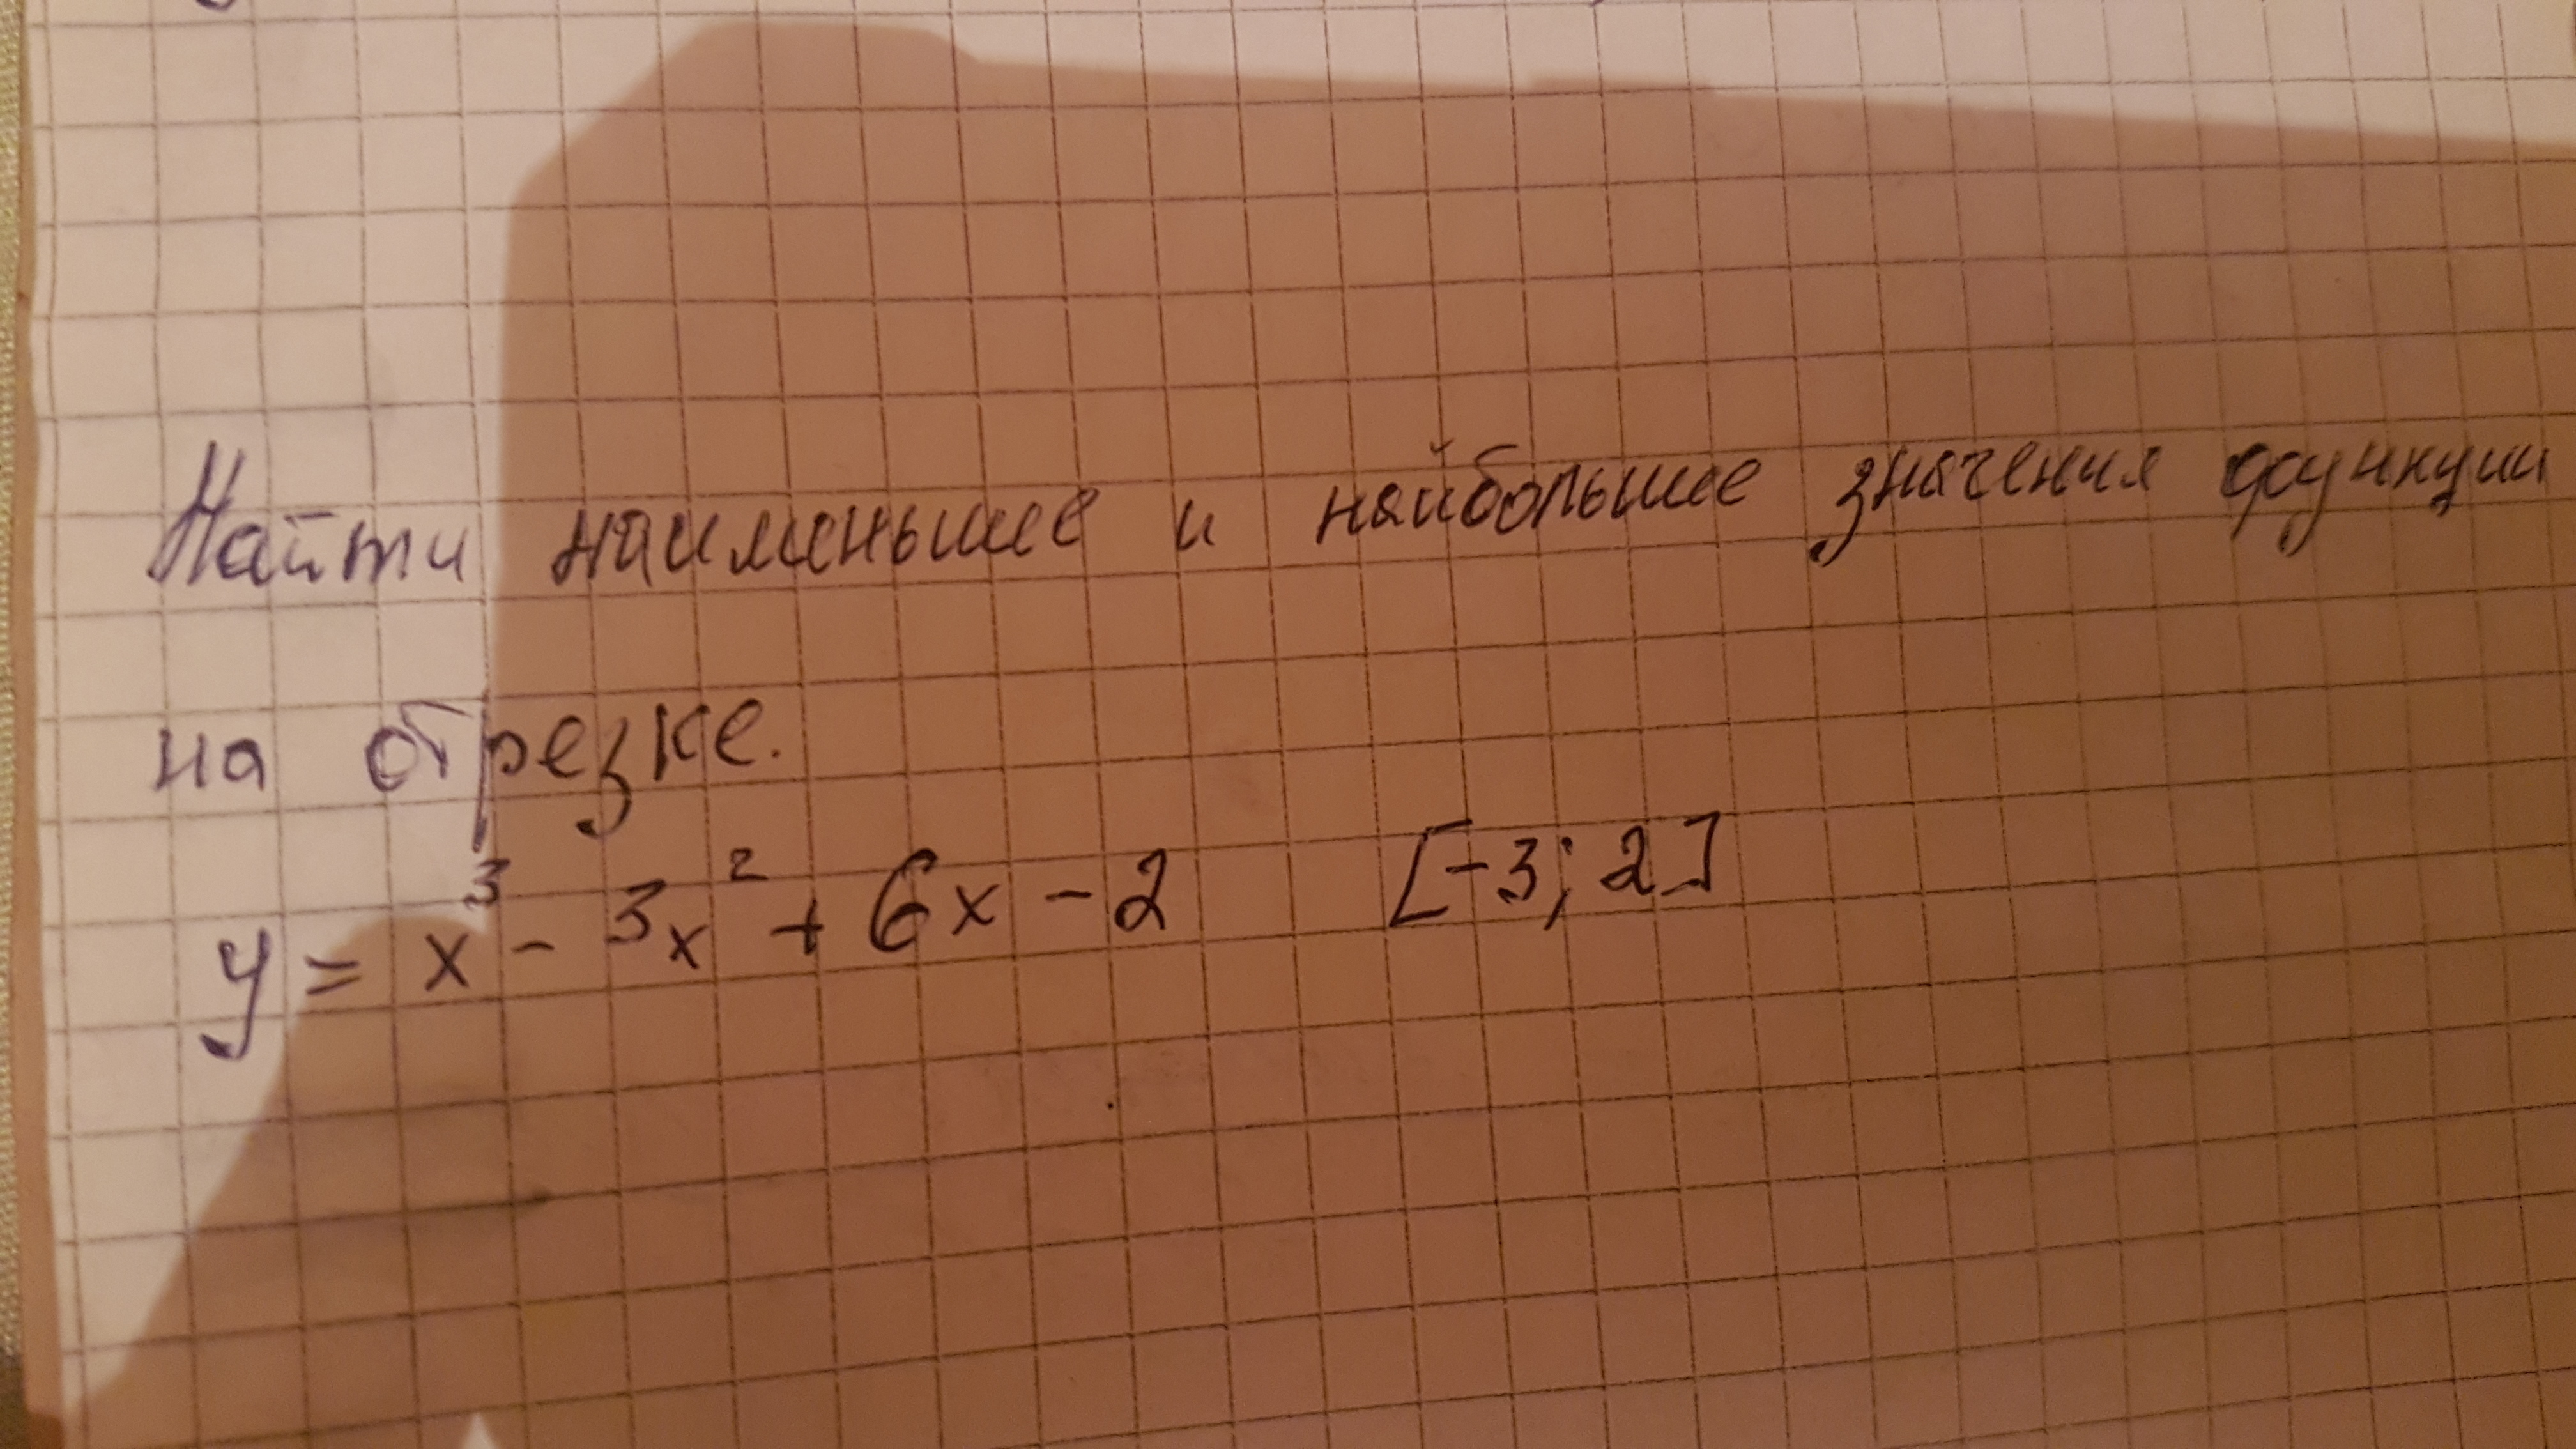 Найти наименьшее и найбольшее значения функции
на отрезке.
y = x³ - 3x² + 6x - 2 [-3; 2]